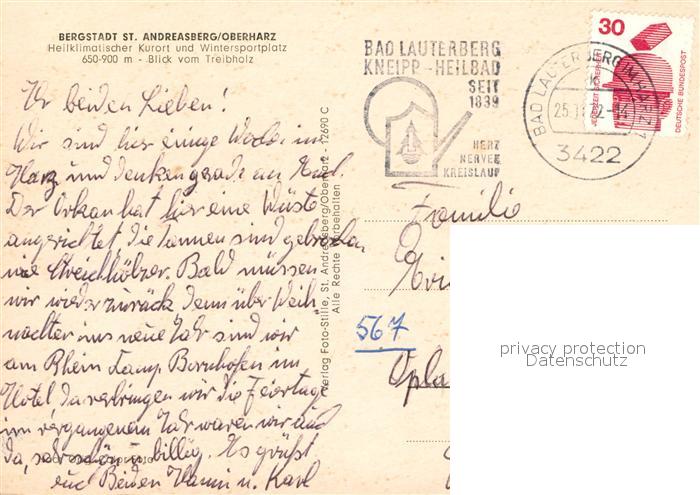 BERGSTADT ST. ANDREASBERG/OBERHARZ
Heilklimatischer Kurort und Wintersportplatz
650-900 m - Blick vom Treibholz
Ihr beiden Lieben!
Wir sind hier einige Wochen im
Harz und denken gerade an Euch.
Der Orkan hat hier eine Wüste
angerichtet, die Tannen sind gebrochen
wie Streichhölzer. Bald müssen
wir wieder zurück, denn über Weih
nachten ins neue Jahr sind wir
am Rhein Kamp Bornhofen im
Hotel da verbringen wir die Feiertage
im vergangenem Jahr waren wir auch
da, sehr schön u. billig. Es grüßt
euch Beiden Hanni u. Karl
Verlag Foto-Stille, St. Andreasberg/Oberharz - 12690 C
Alle Rechte vorbehalten
BAD LAUTERBERG
KNEIPP-HEILBAD
SEIT
1839
HERZ
NERVEN
KREISLAUF
BAD LAUTERBERG IM HARZ 1
3422
30
JEDERZEIT SICHERHEIT
DEUTSCHE BUNDESPOST
Familie
567
privacy protection
Datenschutz